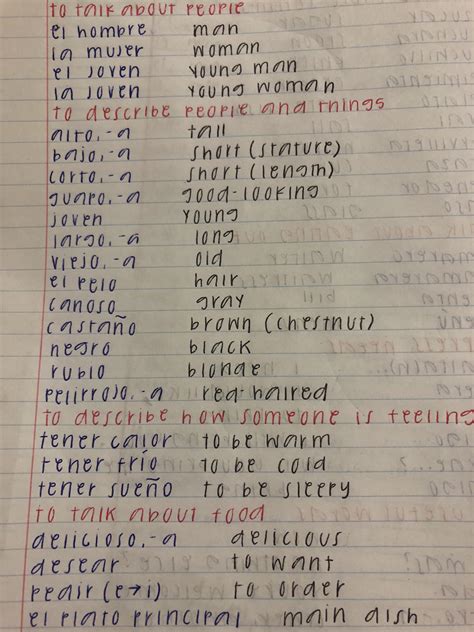 to talk about people
el hombre man
la mujer woman
el joven young man
la joven young woman
to describe people and things
alto,-a tall
bajo,-a short (stature)
corto,-a short (length)
guapo,-a good-looking
joven young
largo,-a long
viejo,-a old
el pelo hair
canoso gray
castaño brown (chestnut)
negro black
rubio blonde
pelirrojo,-a red-haired
to describe how someone is feeling
tener calor to be warm
tener frío to be cold
tener sueño to be sleepy
to talk about food
delicioso,-a delicious
desear to want
pedir (e→i) to order
el plato principal main dish